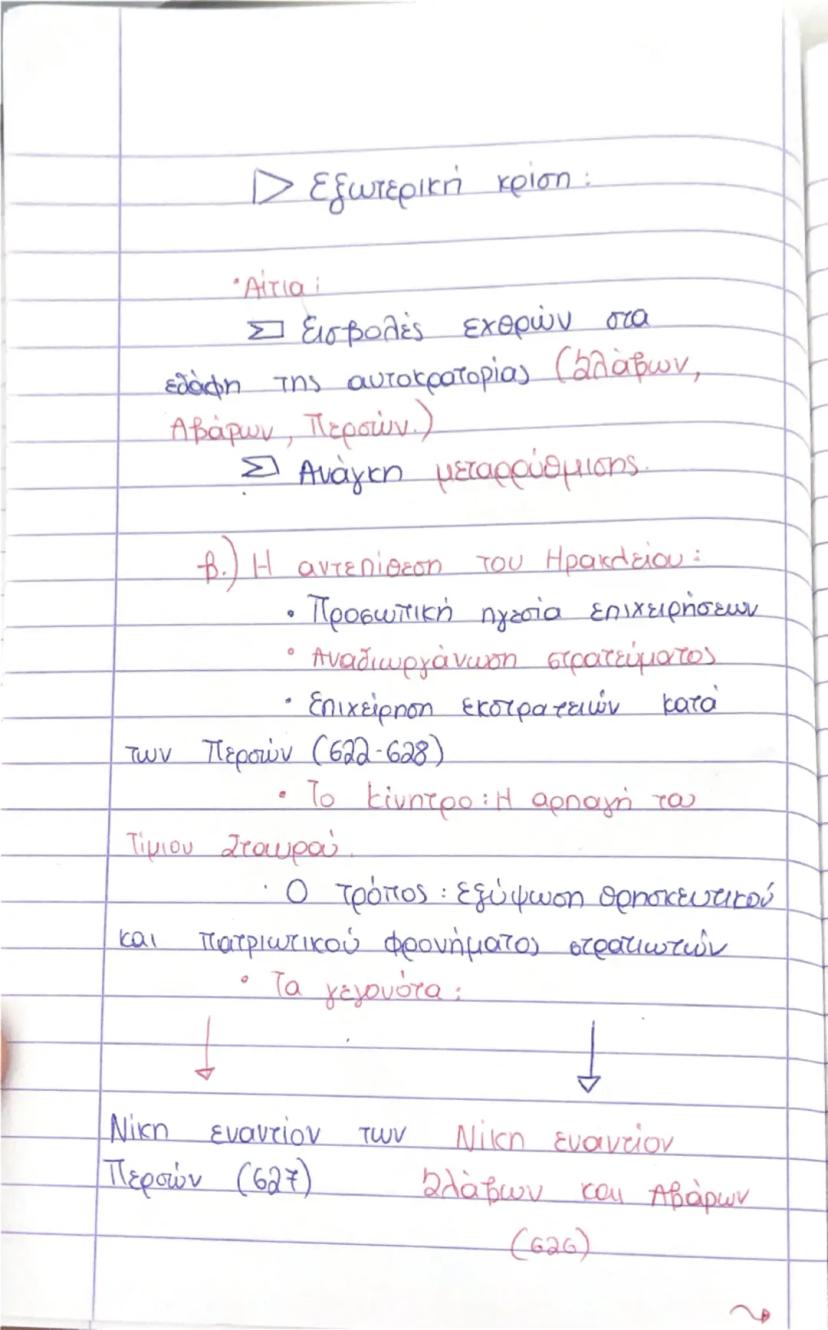 ▷ Εξωτερική κρίση:
• Αίτια:
Εισβολές εχθρών στα
εδάφη της αυτοκρατορίας (Σλάβων,
Αβάρων, Περσών.)
Ανάγκη μεταρρύθμισης.
β.) Η αντεπίθεση του Ηρακλείου:
• Προσωπική ηγεσία επιχειρήσεων
• Αναδιωργάνωση στρατεύματος
• Επιχείρηση εκστρατειών κατά
των Περσών (622-628)
• Το κίνητρο: Η αρπαγή του
Τίμιου Σταυρού.
• Ο τρόπος: εξύψωση θρησκευτικού
και πατριωτικού φρονήματος στρατιωτών
• Τα γεγονότα:
Νίκη εναντίον των
Περσών (627)
Νίκη εναντίον
Σλάβων και Αβάρων
(626)